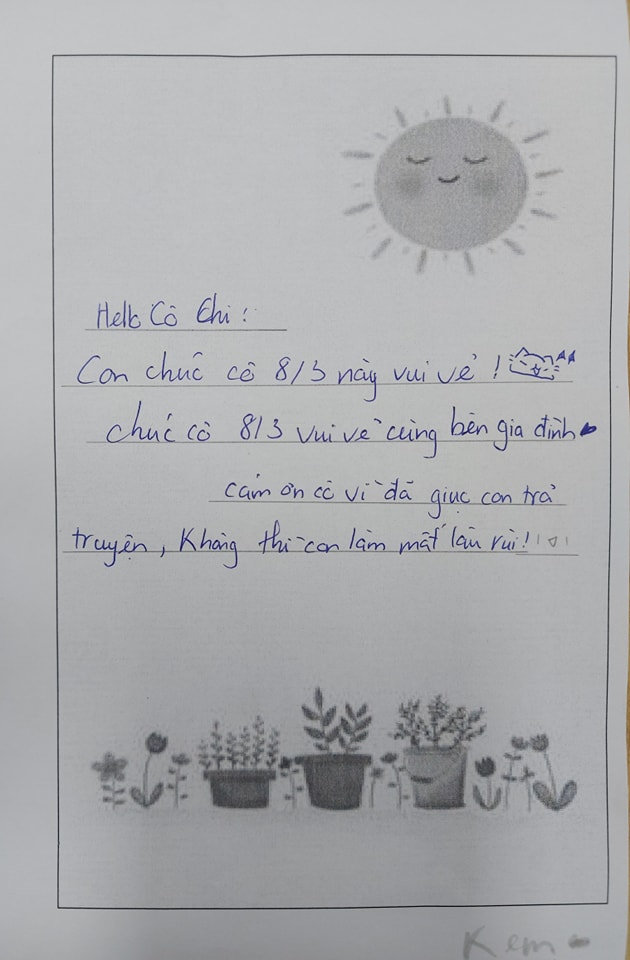 Hello Cô Chi!
Con chúc cô 8/3 này vui vẻ!
chúc cô 8/3 vui vẻ cùng bên gia đình
cảm ơn cô vì đã giục con trả
truyện, không thì con làm mất lâu rùi!
Kem